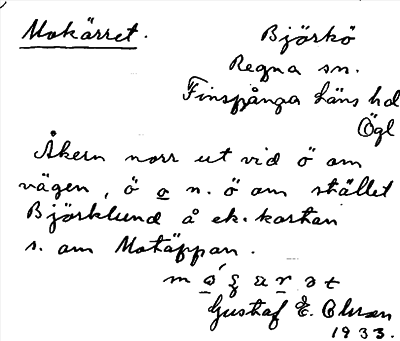 Mokärret.
Björkö
Regna sn.
Finspånga läns hd
Ögl
Åkern norr ut vid ö om
vägen, ö o n. ö om stället
Björklund å ek. kartan
s. om Motäppan.
Gustaf E. Olsson
1933.